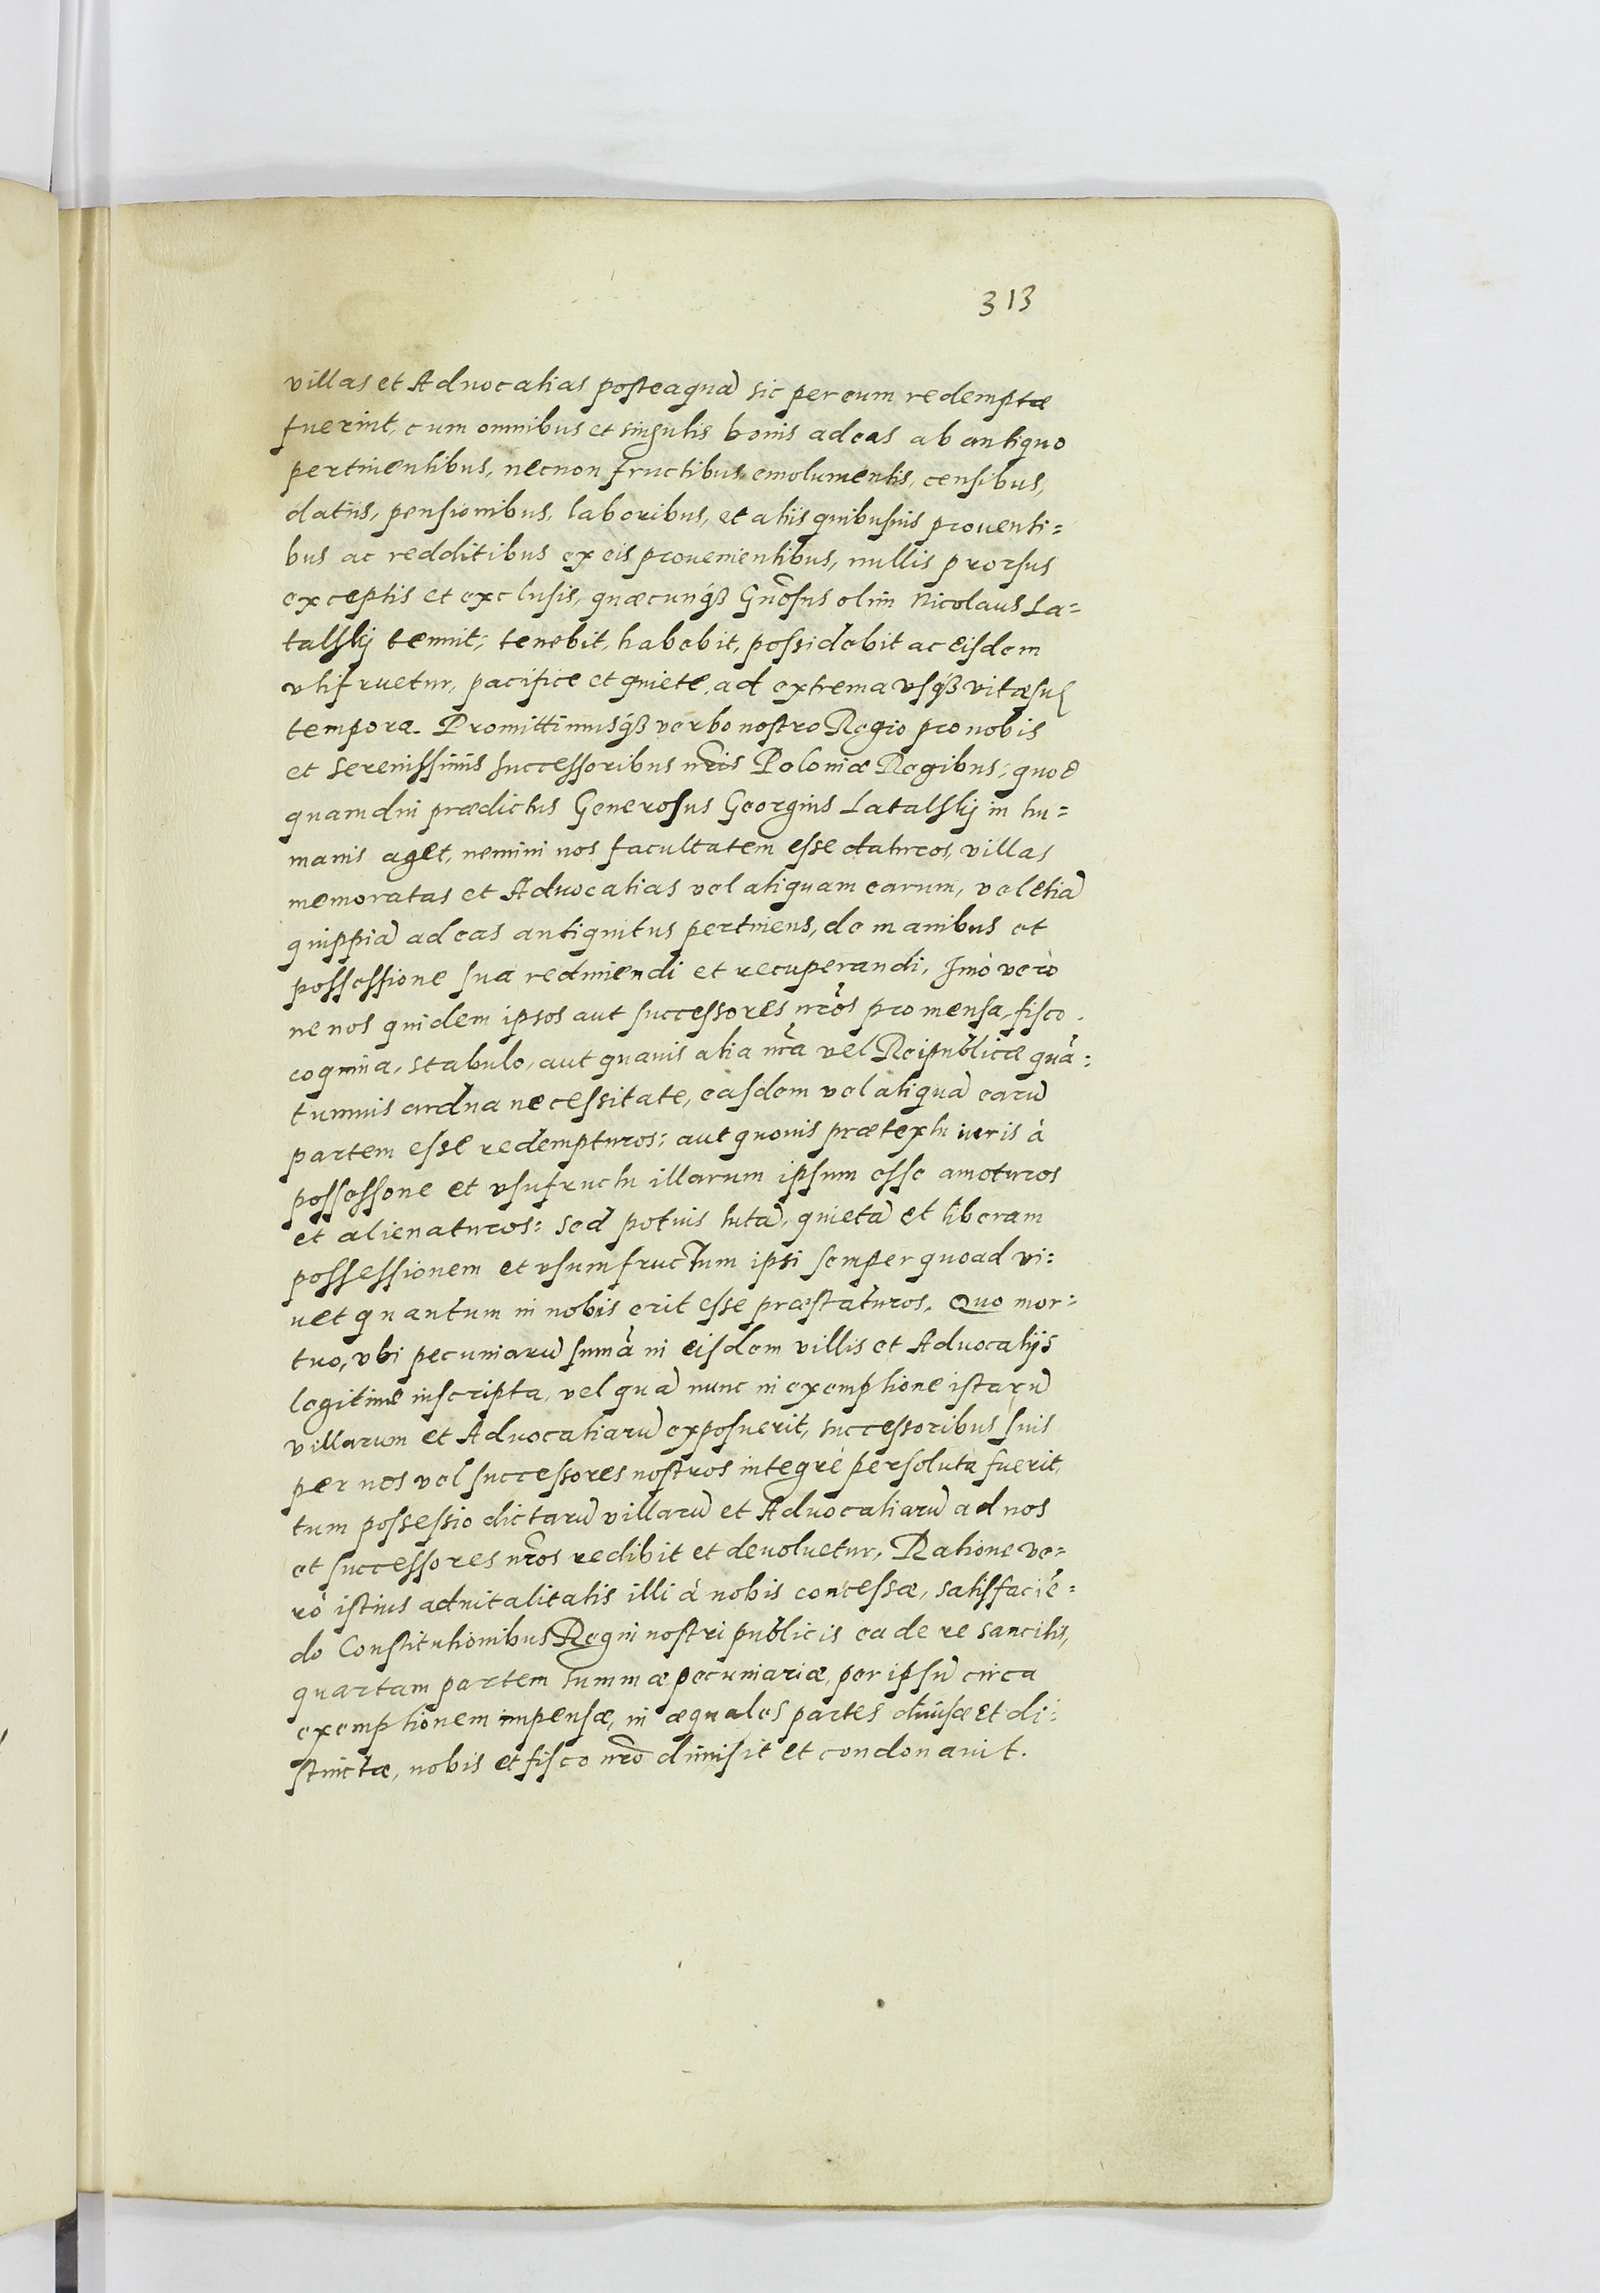 313
villas et Aduocatias posteaquã sic per eum redemptæ
fuerint, cum omnibus et singulis bonis ad eas ab antiquo
pertinentibus, necnon fructibus emolumentis, censibus,
datiis, pensionibus, laboribus, et aliis quibusuis prouenti=
bus ac redditibus ex eis prouenientibus, nullis prorsus
exceptis et exclusis, quæcunqꝫ Gñosus olim Nicolaus La=
talskj tenuit; tenebit, habebit, possidebit ac eisdem
vtifruetur, pacifice et quiete, ad extrema vsqꝫ vitæ suę
tempora. Promittimusqꝫ verbo nostro Regio pro nobis
et serenissimis successoribus nr̃is Poloniæ Regibus; quod
quamdiu prædictus Generosus Georgius Latalskj in hu=
manis aget, nemini nos facultatem esse daturos, villas
memoratas et Aduocatias vel aliquam earum, vel etiã
quippiã ad eas antiquitus pertinens, de manibus et
possessione sua redimendi et recuperandi, Imò verò
ne nos quidem ipsos aut successores nr̃os pro mensa, fisco,
coquina, stabulo, aut quauis alia nr̃a vel Reipublicæ quã=
tumuis ardua necessitate, easdem vel aliquã earũ
partem esse redempturos: aut quouis prætextu iuris à
possessone et vsufructu illarum ipsum esse amoturos
et alienaturos: sed potius tutã, quietã et liberam
possessionem et vsumfructum ipsi semper quoad vi=
uet quantum in nobis erit esse præstaturos. Quo mor=
tuo, vbi pecuniarũ sum̃a in eisdem villis et Aduocatijs
legitime inscripta, vel quã nunc in exemptione istarũ
villarum et Aduocatiarũ exposuerit, successoribus suis
per nos vel successores nostros integrè persoluta fuerit,
tum possessio dictarũ villarũ et Aduocatiarũ ad nos
et successores nr̃os redibit et deuoluetur. Ratione ve=
rò istius aduitalitatis illi à nobis concessæ, satisfaciẽ=
do Constitutionibus Regni nostri publicis ea de re sancitis,
quartam partem summæ pecuniariæ per ipsũ circa
exemptionem impensæ, in æquales partes diuisæ et di=
stinctæ, nobis et fisco nr̃o dimisit et condonauit.